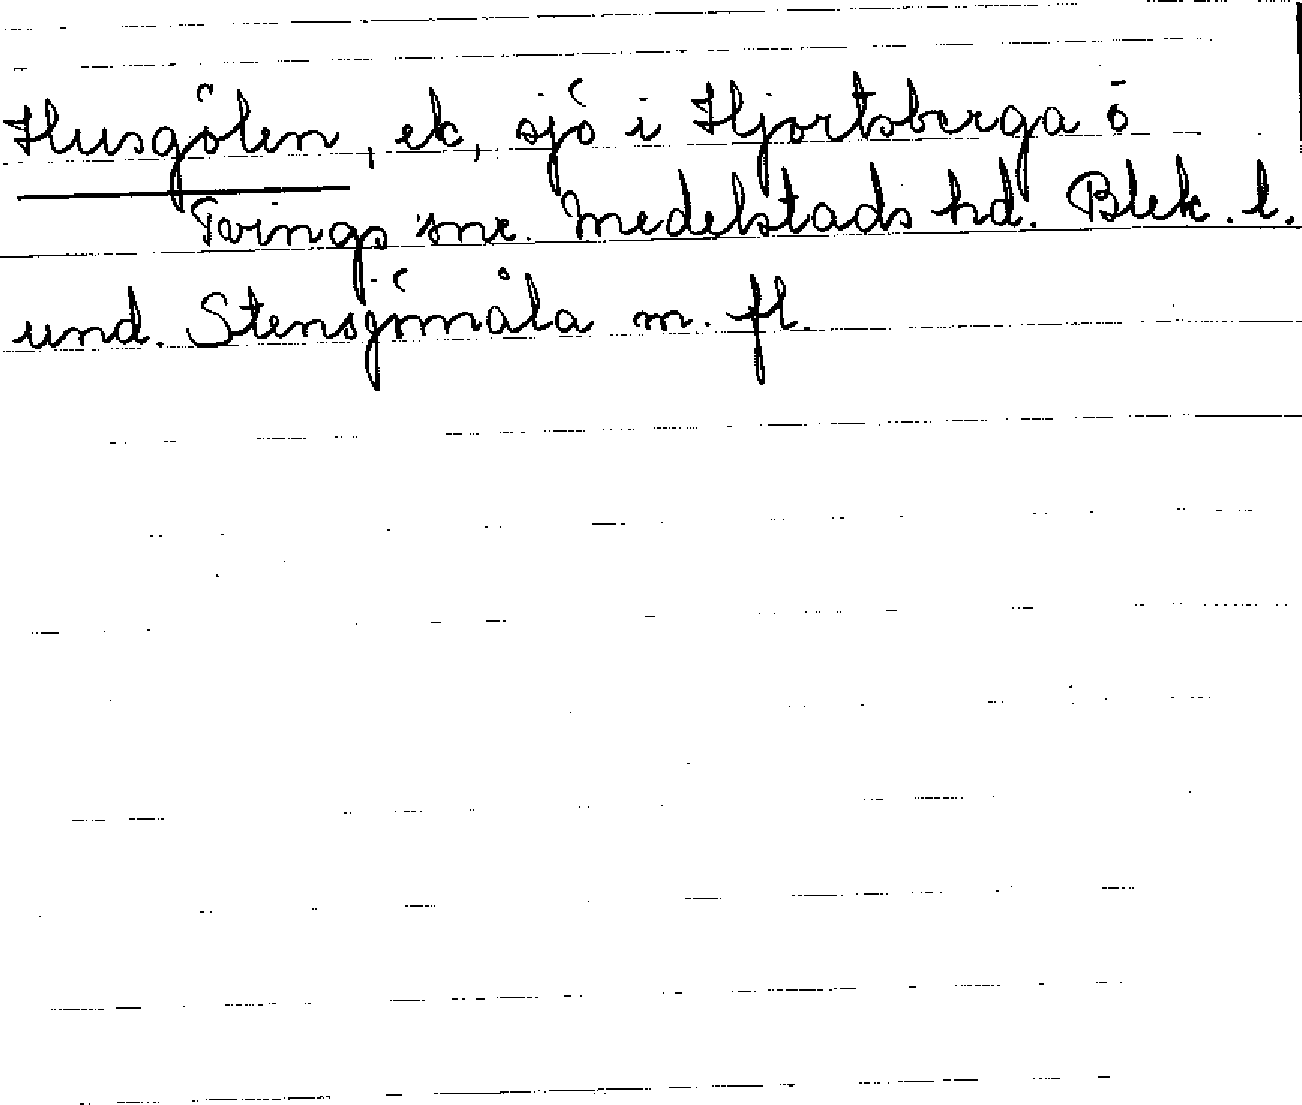 Husgölen, ek, sjö i Hjortsberga o
Tvings snr. Medelstads hd. Blek. l.
und. Stensjömåla m. fl.